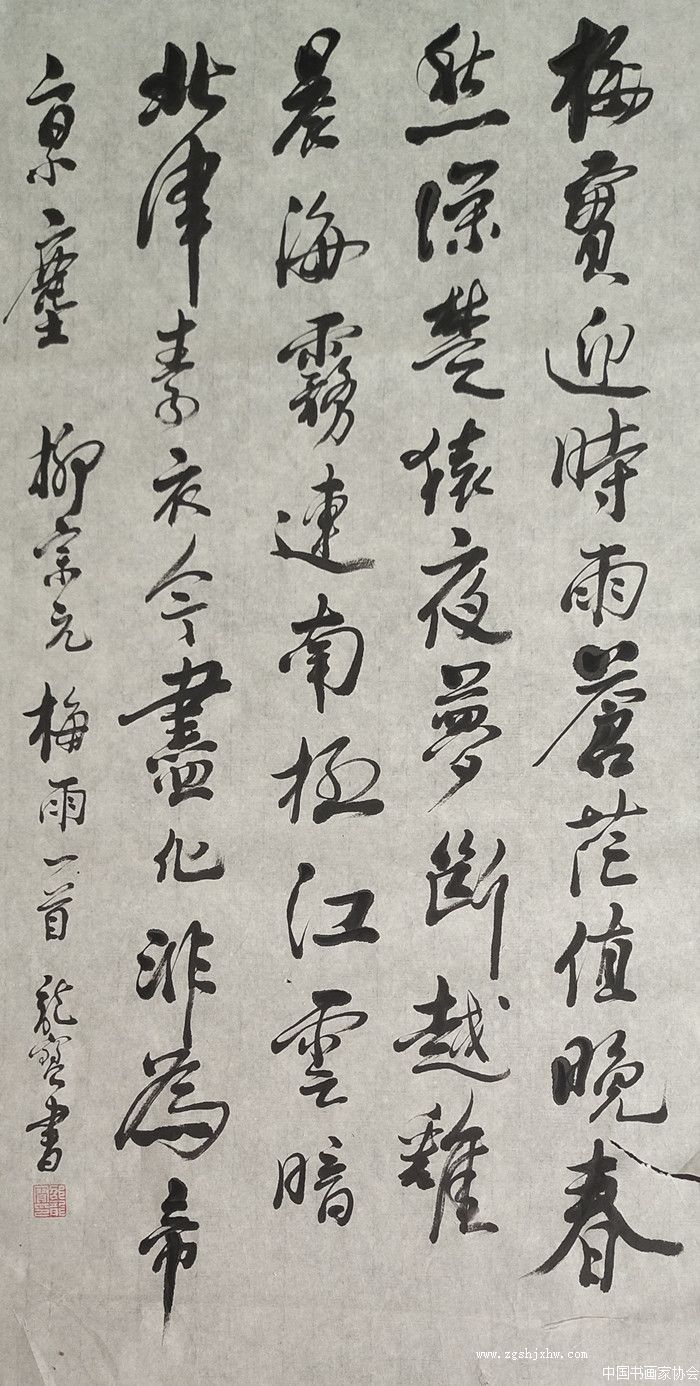 梅實迎時雨蒼茫值晚春
愁深楚猿夜夢斷越雞
晨海霧連南極江雲暗
北津素衣今盡化非為帝
京塵 柳宗元 梅雨一首 龍書
www.zgshjxhw.com
中国书画家协会